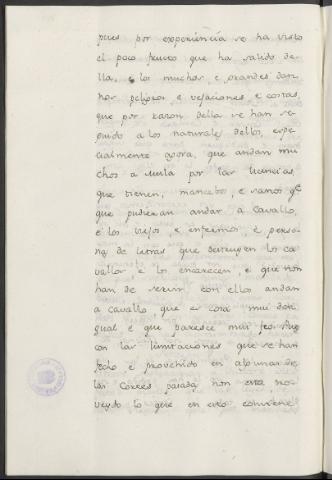 pues por experiencia se ha visto
el poco fruto que ha salido de-
lla, e los muchos e grandes dan-
nos peligros e vejaciones e costas,
que por razon della se han se-
guido a los naturales dellos, espe-
cialmente agora, que andan mu-
chos a mula por las licencias,
que tienen, mancebos, e sanos
que pudieran andar a cavallo,
e los viejos e enfermos, e perso-
nas de letras que destruyen los ca-
vallos, e los encarecen, e que non
han de servir con ellos andan
a cavallo que es cosa mui desi-
gual e que paresce mui feo
con las limitaciones que se han
fecho e provehido en algunas de
las Cortes pasadas non esta pro-
veydo lo que en esto conviene